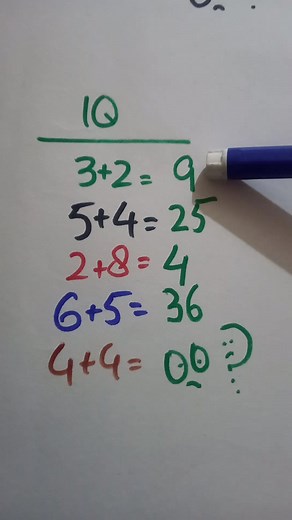 IQ
3+2= 9
5+4= 25
2+8= 4
6+5= 36
4+4= 00 ?